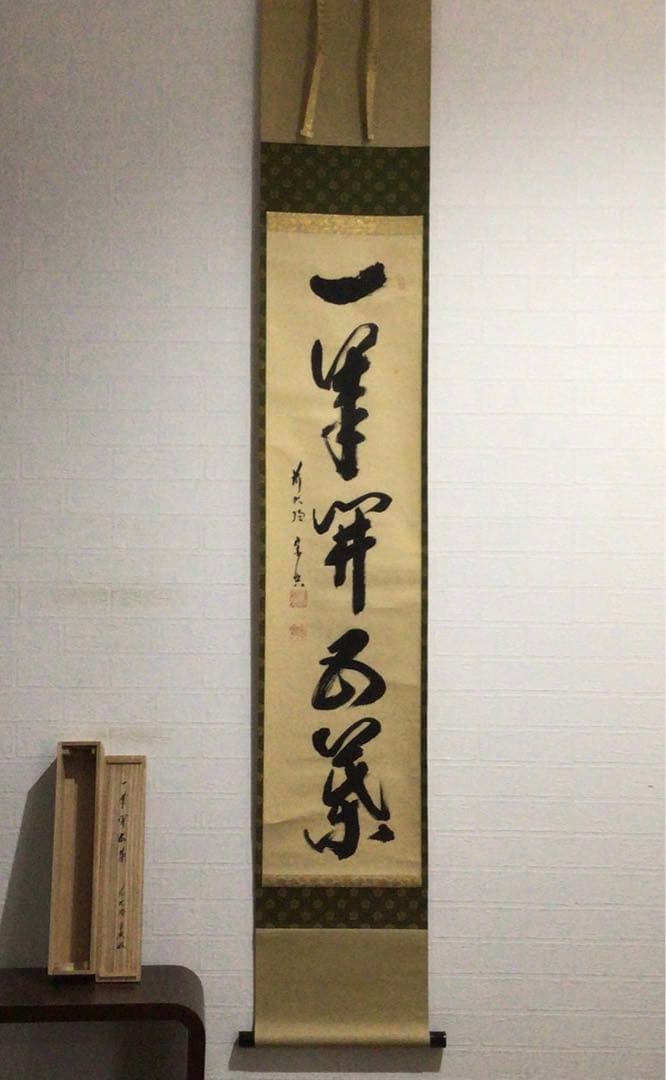 一華開五葉
前大徳
一華開五葉
前大徳